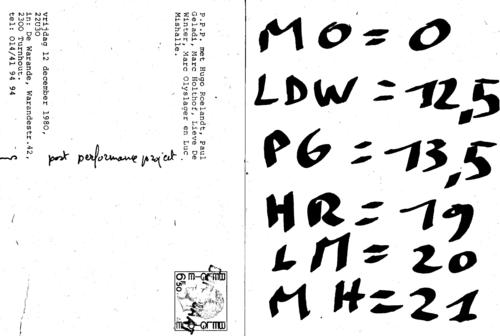 P.P.P. met Hugo Roelandt, Paul
Geladi, Marc Holthof Lieve De
Winter, Marc Olyslager en Luc
Mishalle.
vrijdag 12 december 1980,
22U30
in: De Warande, Warandestr.42,
2300 Turnhout.
tel: 014/41 94 94
post performance project.
650
MO = 0
LDW = 12,5
PG = 13,5
HR = 19
LM = 20
MH = 21